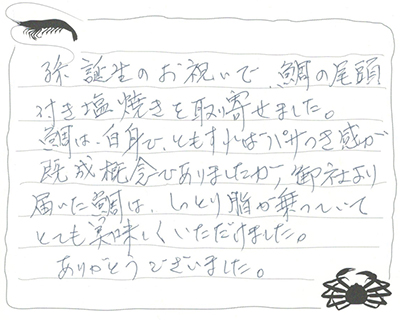 孫誕生のお祝いで、鯛の尾頭
付き塩焼きを取り寄せました。
鯛は、白身で、ともすればパサつき感が
既成概念でありましたが、御社より
届いた鯛は、しっとり脂が乗っていて
とても美味しくいただけました。
ありがとうございました。